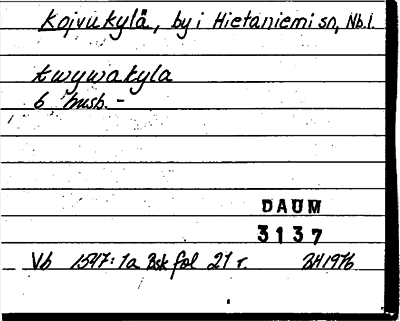 Koivukylä, by i Hietaniemi sn, Nb.l.
kwywakyla
6 hush. -
DAUM
3137
Vb 1547:1a Bsk fol 21 r. BH1976